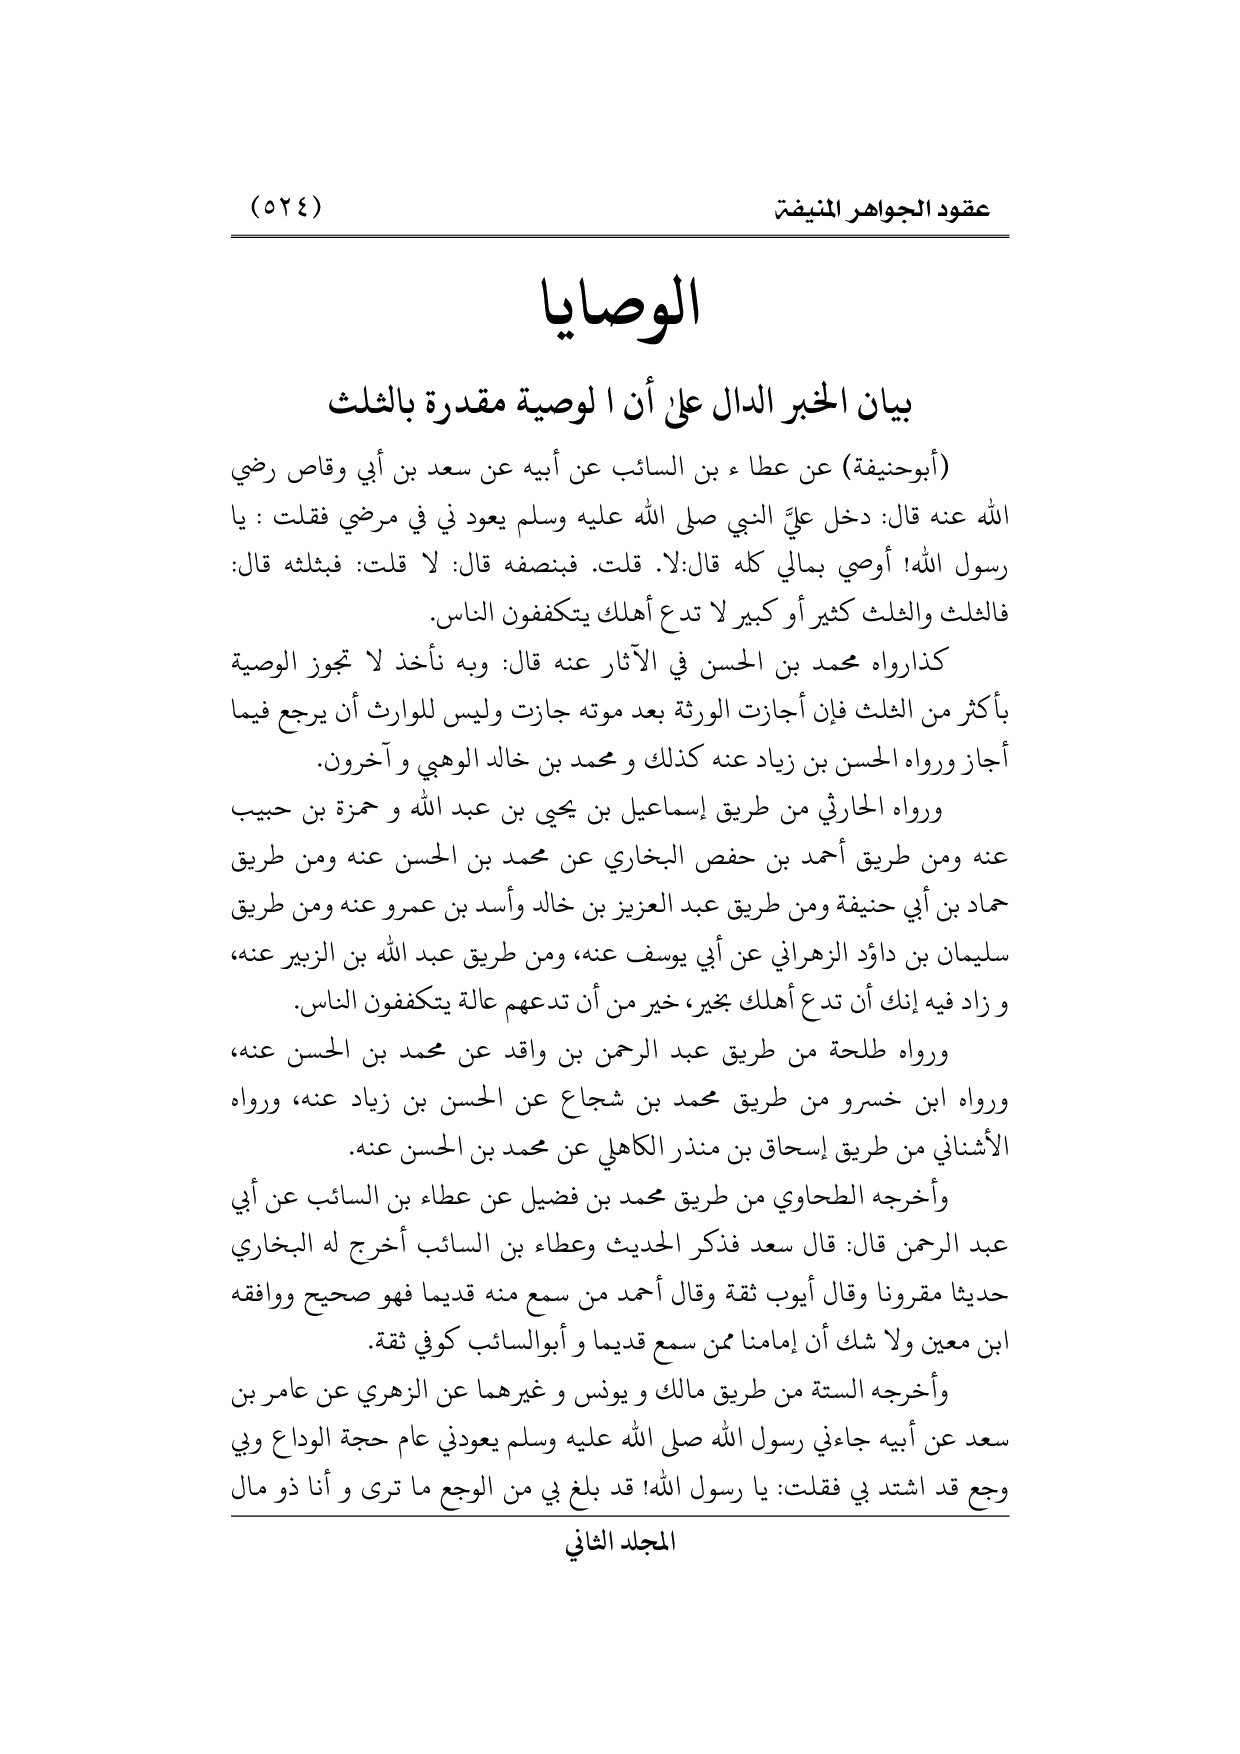 عقود الجواهر المنيفة (٥٢٤)
الوصايا
بيان الخبر الدال على أن ا لوصية مقدرة بالثلث
(أبوحنيفة) عن عطا ء بن السائب عن أبيه عن سعد بن أبي وقاص رضي
الله عنه قال: دخل عليَّ النبي صلى الله عليه وسلم يعود ني في مرضي فقلت : يا
رسول الله! أوصي بمالي كله قال:لا. قلت. فبنصفه قال: لا قلت: فبثلثه قال:
فالثلث والثلث كثير أو كبير لا تدع أهلك يتكففون الناس.
كذارواه محمد بن الحسن في الآثار عنه قال: وبه نأخذ لا تجوز الوصية
بأكثر من الثلث فإن أجازت الورثة بعد موته جازت وليس للوارث أن يرجع فيما
أجاز ورواه الحسن بن زياد عنه كذلك و محمد بن خالد الوهبي و آخرون.
ورواه الحارثي من طريق إسماعيل بن يحيى بن عبد الله و حمزة بن حبيب
عنه ومن طريق أحمد بن حفص البخاري عن محمد بن الحسن عنه ومن طريق
حماد بن أبي حنيفة ومن طريق عبد العزيز بن خالد وأسد بن عمرو عنه ومن طريق
سليمان بن داؤد الزهراني عن أبي يوسف عنه، ومن طريق عبد الله بن الزبير عنه،
و زاد فيه إنك أن تدع أهلك بخير، خير من أن تدعهم عالة يتكففون الناس.
ورواه طلحة من طريق عبد الرحمن بن واقد عن محمد بن الحسن عنه،
ورواه ابن خسرو من طريق محمد بن شجاع عن الحسن بن زياد عنه، ورواه
الأشناني من طريق إسحاق بن منذر الكاهلي عن محمد بن الحسن عنه.
وأخرجه الطحاوي من طريق محمد بن فضيل عن عطاء بن السائب عن أبي
عبد الرحمن قال: قال سعد فذكر الحديث وعطاء بن السائب أخرج له البخاري
حديثا مقرونا وقال أيوب ثقة وقال أحمد من سمع منه قديما فهو صحيح ووافقه
ابن معين ولا شك أن إمامنا ممن سمع قديما و أبوالسائب كوفي ثقة.
وأخرجه الستة من طريق مالك و يونس و غيرهما عن الزهري عن عامر بن
سعد عن أبيه جاءني رسول الله صلى الله عليه وسلم يعودني عام حجة الوداع وبي
وجع قد اشتد بي فقلت: يا رسول الله! قد بلغ بي من الوجع ما ترى و أنا ذو مال
المجلد الثاني